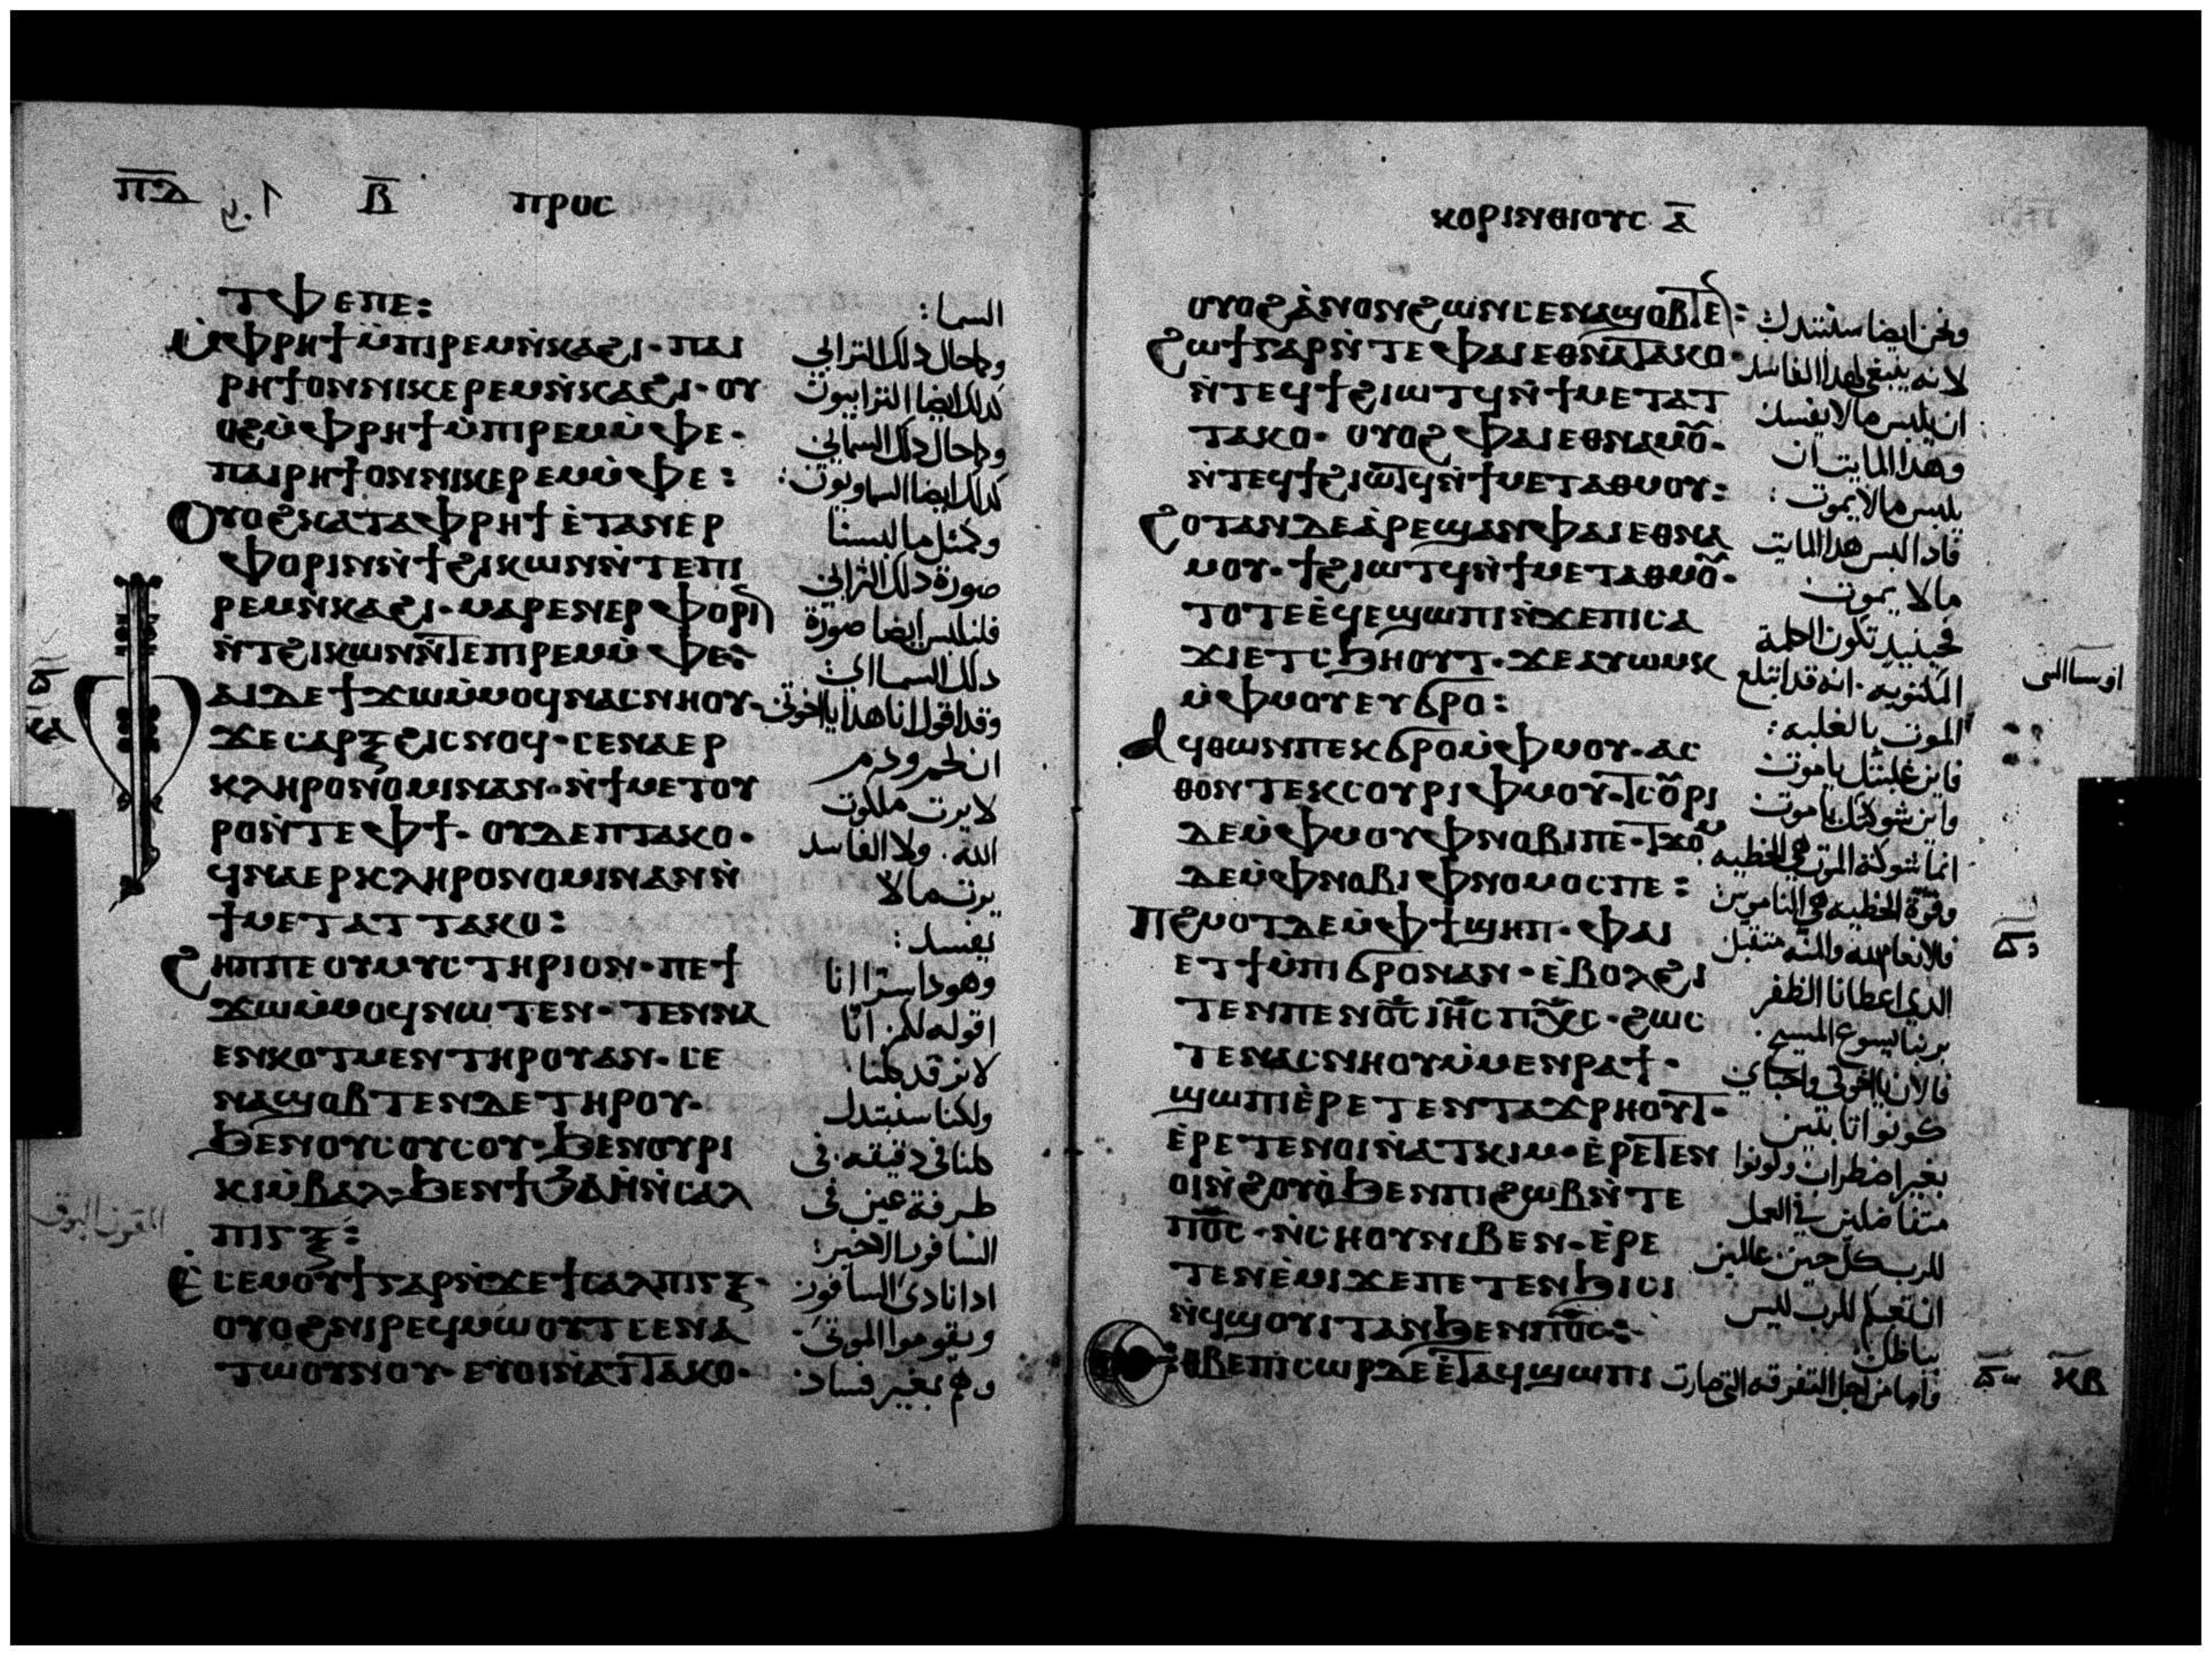 ⲡ̅ⲇ̅ ⲃ̅ ⲡⲣⲟⲥ
ⲧⲫⲉⲡⲉ: السما:
ⲙ̀ⲫⲣⲏϯⲙ̀ⲡⲓⲣⲉⲙⲛ̀ⲕⲁϩⲓ· ⲡⲁⲓ وكحال ذلك الترابي
ⲣⲏϯⲟⲛⲛⲓⲕⲉⲣⲉⲙⲛ̀ⲕⲁϩⲓ· ⲟⲩ كذلك ايضا الترابيون
ⲟϩⲙ̀ⲫⲣⲏϯⲙ̀ⲡⲓⲣⲉⲙⲙ̀ⲫⲉ· وكحال ذلك السمايى
ⲡⲁⲓⲣⲏϯⲟⲛⲛⲓⲕⲉⲣⲉⲙⲙ̀ⲫⲉ: كذلك ايضا السماويون:
ⲟⲩⲟϩⲕⲁⲧⲁⲫⲣⲏϯⲉ̀ⲧⲁⲛⲉⲣ وكمثل ما لبسنا
ⲫⲟⲣⲓⲛⲛ̀ϯϩⲓⲕⲱⲛⲛ̀ⲧⲉⲡⲓ صورة ذلك الترابى
ⲣⲉⲙⲛ̀ⲕⲁϩⲓ· ⲙⲁⲣⲉⲛⲉⲣⲫⲟⲣⲓⲛ فلنلبس ايضا صورة
ⲛ̀ⲧϩⲓⲕⲱⲛⲛ̀ⲧⲉⲡⲓⲣⲉⲙⲙ̀ⲫⲉ: ذلك السمااى
ⲫⲁⲓⲇⲉϯϫⲱⲙ̀ⲙⲟϥⲛⲁⲥⲛⲏⲟⲩ· وقد اقول انا هذا يا اخوتى
ϫⲉⲥⲁⲣⲝϩⲓⲥⲛⲟϥ· ⲥⲉⲛⲁⲉⲣ ان لحم ودم
ⲕⲗⲏⲣⲟⲛⲟⲙⲓⲛⲁⲛ· ⲛ̀ϯⲙⲉⲧⲟⲩ لا يرث ملكوت
ⲣⲟⲛ̀ⲧⲉⲫϯ· ⲟⲩⲇⲉⲡⲧⲁⲕⲟ· الله. ولا الفاسد
ϥⲛⲁⲉⲣⲕⲗⲏⲣⲟⲛⲟⲙⲓⲛⲁⲛⲛ̀ يرث ما لا
ϯⲙⲉⲧⲁⲧⲧⲁⲕⲟ: يفسد:
ϩⲏⲡⲡⲉⲟⲩⲙⲩⲥⲧⲏⲣⲓⲟⲛ· ⲡⲉϯ وهوذا سرا انا
ϫⲱⲙ̀ⲙⲟϥⲛⲱⲧⲉⲛ· ⲧⲉⲛⲛⲁ اقوله لكم انا
ⲉⲛⲕⲟⲧⲙⲉⲛⲧⲏⲣⲟⲩⲁⲛ· ⲥⲉ لا نرقد كلنا
ⲛⲁϣⲟⲃⲧⲉⲛⲇⲉⲧⲏⲣⲟⲩ· ولكنا سنبتدل
ϧⲉⲛⲟⲩⲥⲟⲩⲥⲟⲩ· ϧⲉⲛⲟⲩⲣⲓ كلنا فى دقيقه. فى
ⲕⲓⲙ̀ⲃⲁⲗ· ϧⲉⲛϯϧⲁⲏ̀ⲛ̀ⲥⲁⲗ طرفة عين فى
ⲡⲓⲅⲝ: السافور الاخير:
القرن البوق
ⲉ̀ⲥⲉⲙⲟⲩϯⲅⲁⲣⲛ̀ϫⲉϯⲥⲁⲗⲡⲓⲅⲝ· اذا نادى السافور
ⲟⲩⲟϩⲛⲓⲣⲉϥⲙⲱⲟⲩⲧⲥⲉⲛⲁ ويقوموا الموتى
ⲧⲱⲟⲩⲛⲟⲩ· ⲉⲩⲟⲓⲛ̀ⲁⲧⲧⲁⲕⲟ· وهم بغير فساد:
ⲕⲟⲣⲓⲛⲑⲓⲟⲩⲥ ⲁ̅
ⲟⲩⲟϩⲁ̀ⲛⲟⲛϩⲱⲛⲥⲉⲛⲁϣⲟⲃⲧⲉⲛ: ونحن ايضا سنبتدل
ϩⲱϯⲅⲁⲣⲛ̀ⲧⲉⲫⲁⲓⲉⲑⲛⲁⲧⲁⲕⲟ· لانه ينبغى لهذا الفاسد
ⲛ̀ⲧⲉϥϯϩⲓⲱⲧϥⲛ̀ϯⲙⲉⲧⲁⲧ ان يلبس ما لا يفسد
ⲧⲁⲕⲟ· ⲟⲩⲟϩⲫⲁⲓⲉⲑⲛⲁⲙⲟⲩ· وهذا المايت ان
ⲛ̀ⲧⲉϥϯϩⲓⲱⲧϥⲛ̀ϯⲙⲉⲧⲁⲑⲙⲟⲩ: يلبس ما لا يموت:
ϩⲟⲧⲁⲛⲇⲉⲁ̀ⲣⲉϣⲁⲛⲫⲁⲓⲉⲑⲛⲁ فاذا لبس هذا المايت
ⲙⲟⲩ· ϯϩⲓⲱⲧϥⲛ̀ϯⲙⲉⲧⲁⲑⲙⲟⲩ· ما لا يموت
ⲧⲟⲧⲉⲉ̀ϥⲉϣⲱⲡⲓⲛ̀ϫⲉⲡⲓⲥⲁ فحينيذ تكون الكلمة
ϫⲓⲉⲧⲥϧⲏⲟⲩⲧ· ϫⲉⲁⲩⲱⲙⲕ المكتوبه. انه قد ابتلع
ⲙ̀ⲫⲙⲟⲩⲉⲩϭⲣⲟ: الموت بالغلبه:
ⲁϥⲑⲱⲛⲡⲉⲕϭⲣⲟⲙ̀ⲫⲙⲟⲩ· ⲁⲥ فاين غلبتك يا موت
ⲑⲟⲛⲧⲉⲕⲥⲟⲩⲣⲓⲫⲙⲟⲩ· ⲧⲥⲟⲩⲣⲓ واين شوكتك يا موت
ⲇⲉⲙ̀ⲫⲙⲟⲩⲫⲛⲟⲃⲓⲡⲉ· ⲧϫⲟⲙ انما شوكة الموت هى الخطيه
ⲇⲉⲙ̀ⲫⲛⲟⲃⲓⲫⲛⲟⲙⲟⲥⲡⲉ: وقوة الخطيه هى الناموس:
ⲡϩⲙⲟⲧⲇⲉⲙ̀ⲫϯϣⲏⲡ· ⲫⲁⲓ فالانعام لله والمنه متقبل
ⲉⲧϯⲙ̀ⲡⲓϭⲣⲟⲛⲁⲛ· ⲉ̀ⲃⲟⲗϩⲓ الذى اعطانا الظفر
ⲧⲉⲛⲡⲉⲛⲟ̅ⲥ̅ⲓⲏ̅ⲥ̅ⲡⲭ̅ⲥ̅· ϩⲱⲥ بربنا يسوع المسيح.
ⲧⲉⲛⲁⲥⲛⲏⲟⲩⲙ̀ⲙⲉⲛⲣⲁϯ· فالان يا اخوتى واحباى
ϣⲱⲡⲓⲉ̀ⲣⲉⲧⲉⲛⲧⲁϫⲣⲏⲟⲩⲧ· كونوا ثابتين
ⲉ̀ⲣⲉⲧⲉⲛⲟⲓⲛ̀ⲁⲧⲕⲓⲙ· ⲉ̀ⲣⲉⲧⲉⲛ بغير اضطراب وكونوا
ⲟⲓⲛ̀ϩⲟⲩⲟ̀ϧⲉⲛⲡⲓϩⲱⲃⲛ̀ⲧⲉ متفاضلين فى العمل
ⲡⲟ̅ⲥ̅· ⲛ̀ⲥⲏⲟⲩⲛⲓⲃⲉⲛ· ⲉ̀ⲣⲉ للرب كل حين. عالمين
ⲧⲉⲛⲉ̀ⲙⲓϫⲉⲡⲉⲧⲉⲛϧⲓⲥⲓ ان تعبكم للرب ليس
ⲛ̀ϥϣⲟⲩⲓⲧⲁⲛϧⲉⲛⲡⲟ̅ⲥ̅:· بباطل:
ⲉⲑⲃⲉⲡⲓⲥⲱⲣⲇⲉⲉ̀ⲧⲁϥϣⲱⲡⲓ فاما من اجل التفرقه التى صارت ⲕ̅ⲃ̅